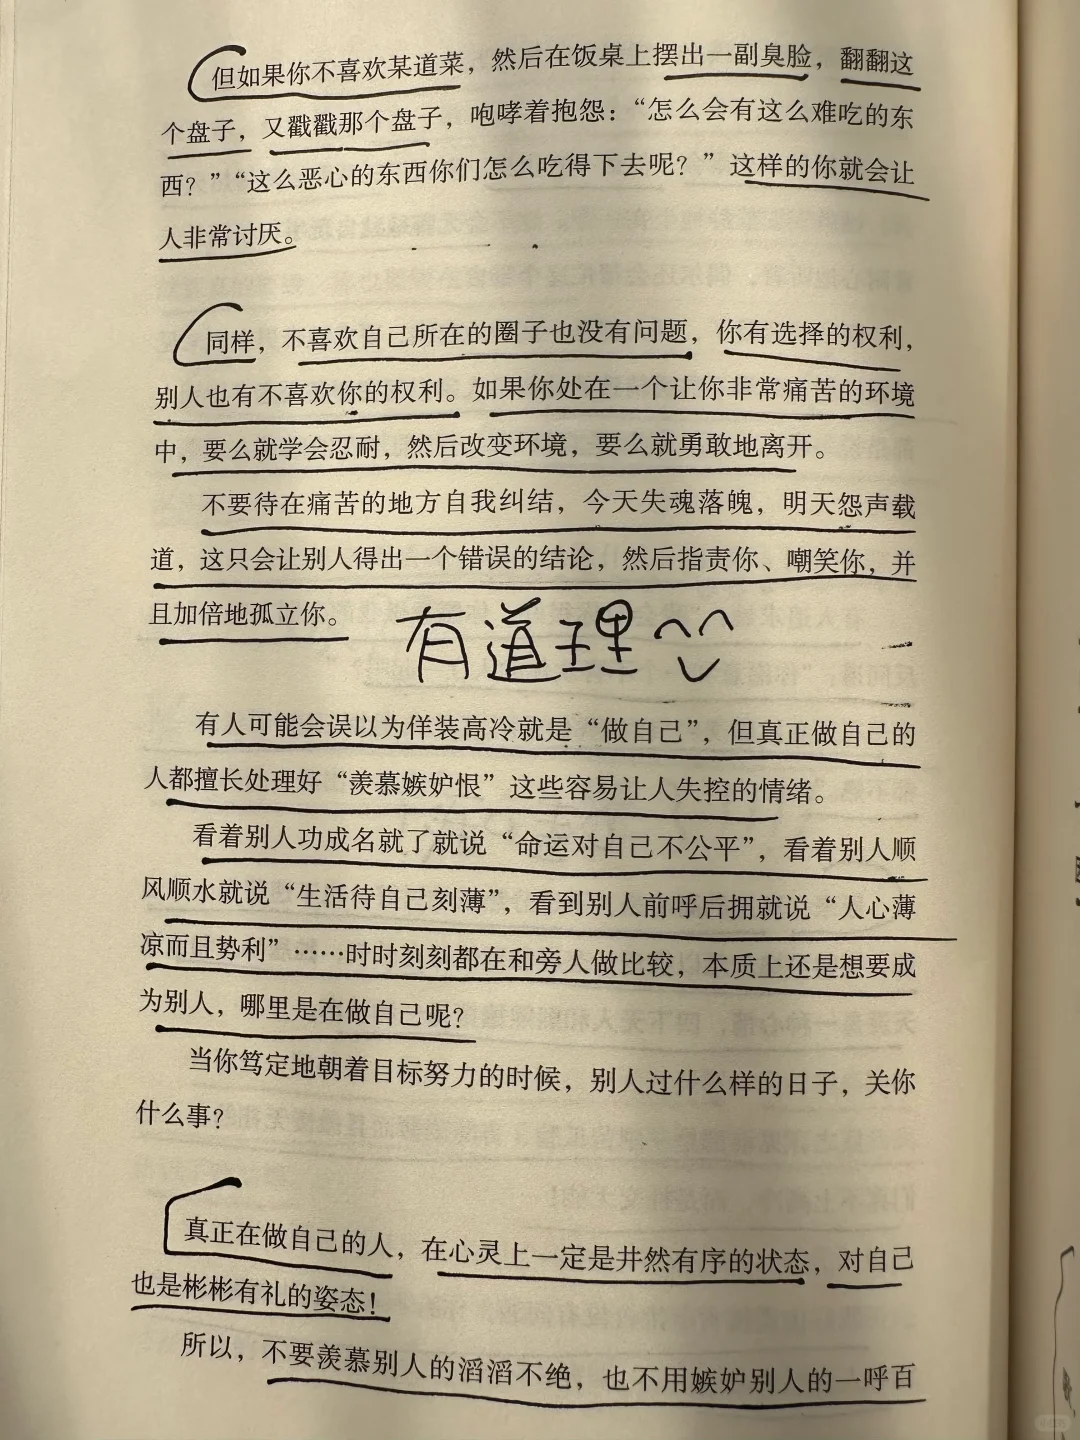 但如果你不喜欢某道菜，然后在饭桌上摆出一副臭脸，翻翻这
个盘子，又戳戳那个盘子，咆哮着抱怨：“怎么会有这么难吃的东
西？”“这么恶心的东西你们怎么吃得下去呢？”这样的你就会让
人非常讨厌。
同样，不喜欢自己所在的圈子也没有问题，你有选择的权利，
别人也有不喜欢你的权利。如果你处在一个让你非常痛苦的环境
中，要么就学会忍耐，然后改变环境，要么就勇敢地离开。
不要待在痛苦的地方自我纠结，今天失魂落魄，明天怨声载
道，这只会让别人得出一个错误的结论，然后指责你、嘲笑你，并
且加倍地孤立你。
有道理
有人可能会误以为佯装高冷就是“做自己”，但真正做自己的
人都擅长处理好“羡慕嫉妒恨”这些容易让人失控的情绪。
看着别人功成名就了就说“命运对自己不公平”，看着别人顺
风顺水就说“生活待自己刻薄”，看到别人前呼后拥就说“人心薄
凉而且势利”……时时刻刻都在和旁人做比较，本质上还是想要成
为别人，哪里是在做自己呢？
当你笃定地朝着目标努力的时候，别人过什么样的日子，关你
什么事？
真正在做自己的人，在心灵上一定是井然有序的状态，对自己
也是彬彬有礼的姿态！
所以，不要羡慕别人的滔滔不绝，也不用嫉妒别人的一呼百